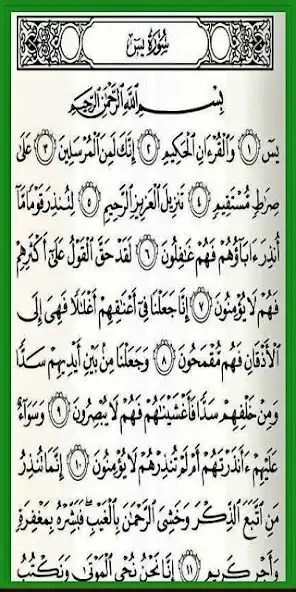 سُورَةُ يسٓ
بِسْمِ اللَّهِ الرَّحْمَٰنِ الرَّحِيمِ
يسٓ ١ وَالْقُرْءَانِ الْحَكِيمِ ٢ إِنَّكَ لَمِنَ الْمُرْسَلِينَ ٣ عَلَىٰ
صِرَٰطٍ مُّسْتَقِيمٍ ٤ تَنزِيلَ الْعَزِيزِ الرَّحِيمِ ٥ لِتُنذِرَ قَوْمًا مَّا
أُنذِرَ ءَابَاؤُهُمْ فَهُمْ غَٰفِلُونَ ٦ لَقَدْ حَقَّ الْقَوْلُ عَلَىٰ أَكْثَرِهِمْ
فَهُمْ لَا يُؤْمِنُونَ ٧ إِنَّا جَعَلْنَا فِىٓ أَعْنَٰقِهِمْ أَغْلَٰلًا فَهِىَ إِلَى
الْأَذْقَانِ فَهُم مُّقْمَحُونَ ٨ وَجَعَلْنَا مِنۢ بَيْنِ أَيْدِيهِمْ سَدًّا
وَمِنْ خَلْفِهِمْ سَدًّا فَأَغْشَيْنَٰهُمْ فَهُمْ لَا يُبْصِرُونَ ٩ وَسَوَآءٌ
عَلَيْهِمْ ءَأَنذَرْتَهُمْ أَمْ لَمْ تُنذِرْهُمْ لَا يُؤْمِنُونَ ١٠ إِنَّمَا تُنذِرُ
مَنِ اتَّبَعَ الذِّكْرَ وَخَشِىَ الرَّحْمَٰنَ بِالْغَيْبِ ۖ فَبَشِّرْهُ بِمَغْفِرَةٍ
وَأَجْرٍ كَرِيمٍ ١١ إِنَّا نَحْنُ نُحْىِ الْمَوْتَىٰ وَنَكْتُبُ